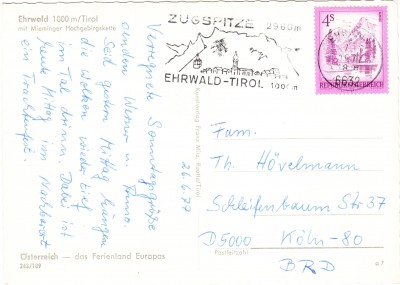 Ehrwald 1000 m/Tirol
mit Mieminger Hochgebirgskette
Verregnete Sonntagsgrüße
senden Werner u.
Seit gestern Mittag hängen
die Wolken wieder tief
im Tal drinn. Dabei ist
heute Mittag im Nachbarort
ein Trachtenfest.
26.6.77
Österreich — das Ferienland Europas
246/159
ZUGSPITZE 2960m
EHRWALD-TIROL 1000m
4S
REPUBLIK ÖSTERREICH
6632
Fam.
Th. Hövelmann
Schleifenbaum Str 37
D5000 Köln-80
Postleitzahl
BRD